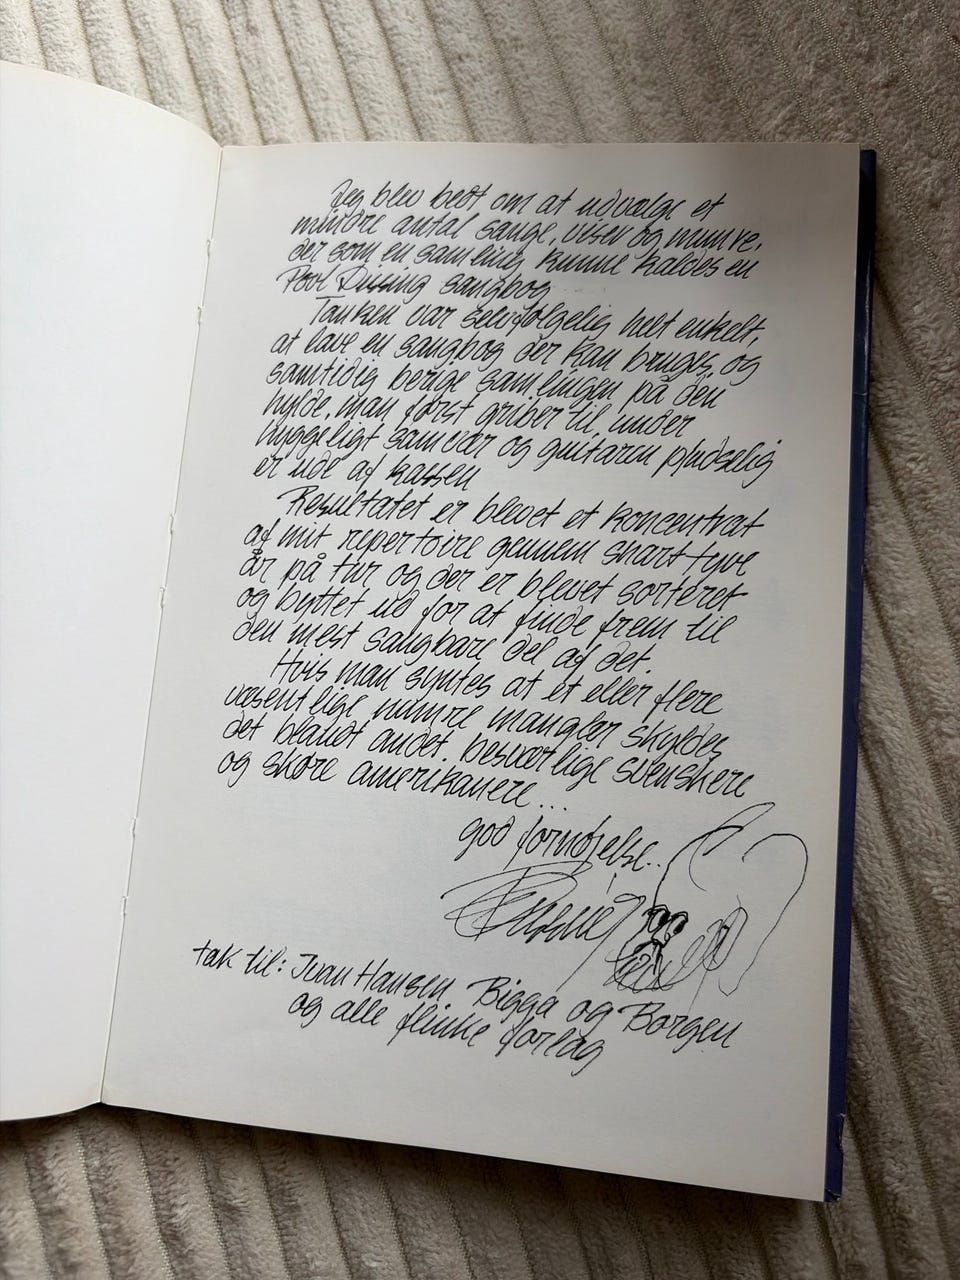 Jeg blev bedt om at udvælge et
mindre antal sange, viser og numre,
der som en samling kunne kaldes en
Povl Dissing sangbog
Tanken var selvfølgelig helt enkelt,
at lave en sangbog der kan bruges, og
samtidig berige samlingen på den
hylde, man først griber til under
hyggeligt samvær og guitaren pludselig
er ude af kassen
Resultatet er blevet et koncentrat
af mit repertoire gennem snart tyve
år på tur og der er blevet sorteret
og byttet ud for at finde frem til
den mest sangbare del af det.
Hvis man syntes at et eller flere
væsentlige numre mangler skyldes
det blandt andet, besværlige svenskere
og skøre amerikanere...
god fornøjelse..
tak til: Ivan Hansen Bigga og Borgen
og alle flinke forlag